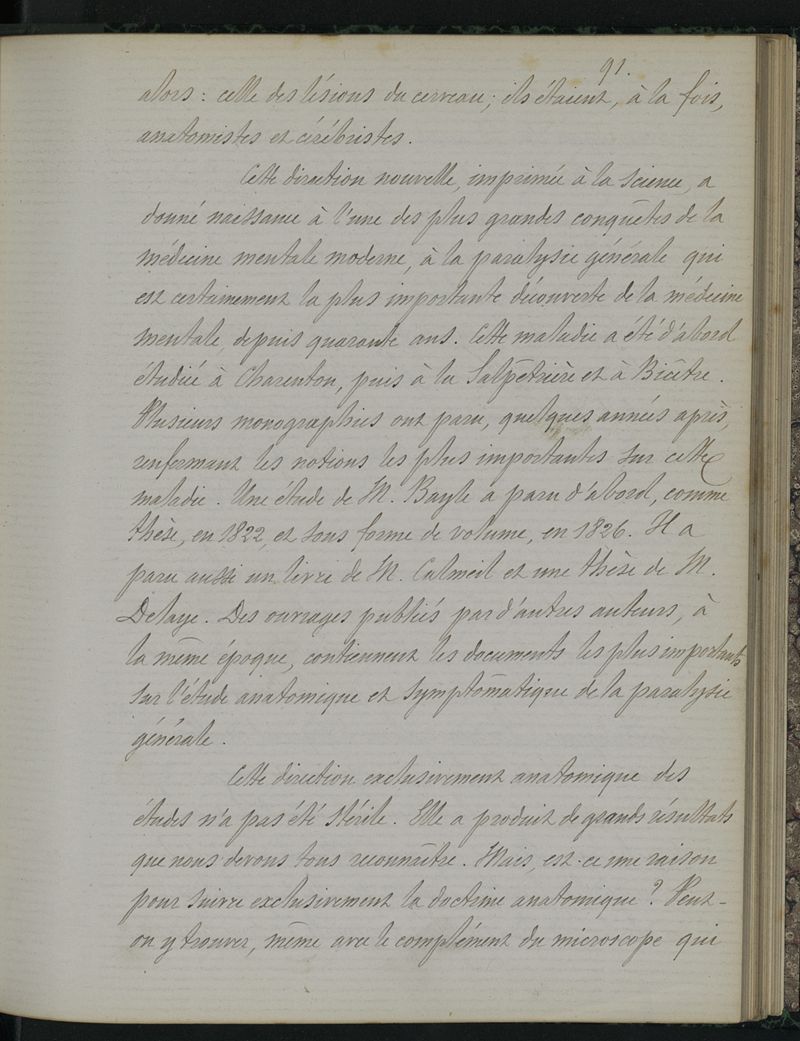 91.
alors : celle des lésions du cerveau ; ils étaient, à la fois,
anatomistes et cérébristes.
Cette direction nouvelle, imprimée à la science, a
donné naissance à l'une des plus grandes conquêtes de la
médecine mentale moderne, à la paralysie générale qui
est certainement la plus importante découverte de la médecine
mentale, depuis quarante ans. Cette maladie a été d'abord
étudiée à Charenton, puis à la Salpêtrière et à Bicêtre.
Plusieurs monographies ont paru, quelques années après,
renfermant les notions les plus importantes sur cette
maladie. Une étude de M. Bayle a paru d'abord, comme
thèse, en 1822, et sous forme de volume, en 1826. Il a
paru aussi un livre de M. Calmeil et une thèse de M.
Delaye. Des ouvrages publiés par d'autres auteurs, à
la même époque, contiennent les documents les plus importants
sur l'étude anatomique et symptômatique de la paralysie
générale.
Cette direction exclusivement anatomique des
études n'a pas été stérile. Elle a produit de grands résultats
que nous devons tous reconnaître. Mais, est-ce une raison
pour suivre exclusivement la doctrine anatomique ? Peut-
on y trouver, même avec le complément du microscope qui